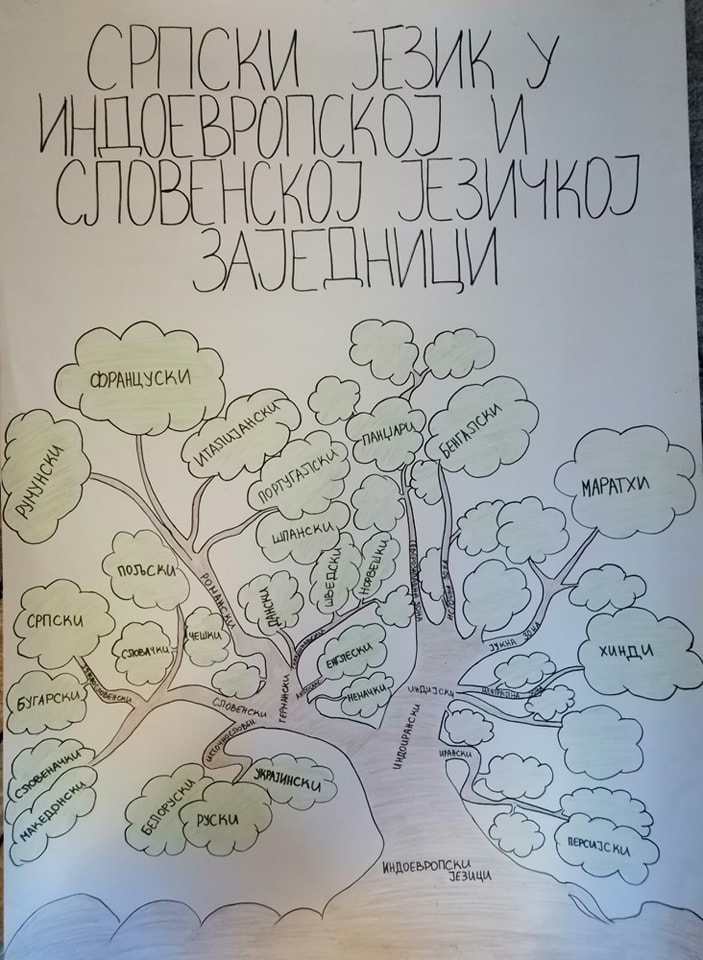 СРПСКИ ЈЕЗИК У
ИНДОЕВРОПСКОЈ И
СЛОВЕНСКОЈ ЈЕЗИЧКОЈ
ЗАЈЕДНИЦИ
ФРАНЦУСКИ
РУМУНСКИ
ИТАЛИЈАНСКИ
ПОРТУГАЛСКИ
ШПАНСКИ
ПАНЏАРИ
БЕНГАЛСКИ
МАРАТХИ
РОМАНСКИ
ПОЉСКИ
СРПСКИ
СЛОВАЧКИ
ЧЕШКИ
ДАНСКИ
ШВЕДСКИ
НОРВЕШКИ
ЕНГЛЕСКИ
НЕМАЧКИ
ГЕРМАНСКИ
ИСТОЧНА ЗОНА
ЈУЖНА ЗОНА
ХИНДИ
БУГАРСКИ
ЈУЖНОСЛОВЕНСКИ
СЛОВЕНСКИ
ИНДИЈСКИ
ЦЕНТРАЛНА ЗОНА
СЛОВЕНАЧКИ
МАКЕДОНСКИ
ИСТОЧНОСЛОВЕН
ИНДОИРАНСКИ
ИРАНСКИ
БЕЛОРУСКИ
РУСКИ
УКРАЈИНСКИ
ПЕРСИЈСКИ
ИНДОЕВРОПСКИ
ЈЕЗИЦИ